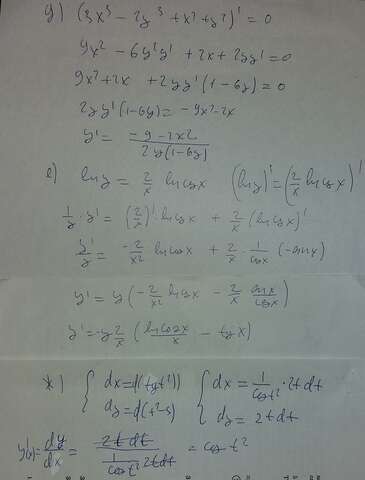 g) (3x³ - 2y³ + x² + y²)' = 0
9x² - 6y²y' + 2x + 2yy' = 0
9x² + 2x + 2yy'(1-6y) = 0
2yy'(1-6y) = -9x² - 2x
y' = (-9 - 2x2)/(2y(1-6y))
e) ln y = 2/x ln cos x (ln y)' = (2/x ln cos x)'
1/y · y' = (2/x)' · ln cos x + 2/x (ln cos x)'
y'/y = -2/x² ln cos x + 2/x · 1/cos x (-sin x)
y' = y(-2/x² ln cos x - 2/x sin x/cos x)
y' = -y 2/x (ln cos x/x - tg x)
ж) { dx = d(tg t²)) { dx = 1/cos t² · 2t dt
dy = d(t²-5) dy = 2t dt
y'(x) = dy/dx = 2t dt/(1/cos t² 2t dt) = cos t²